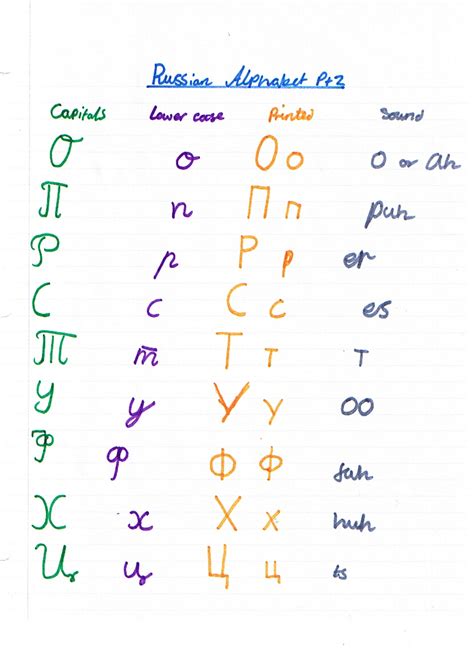 Russian Alphabet Pt 2
Capitals Lower case Printed Sound
О о О о O or Ah
П п П п puh
Р р Р р er
С с С с es
Т т Т т T
У у У у OO
Ф ф Ф ф fah
Х х Х х huh
Ц ц Ц ц ts